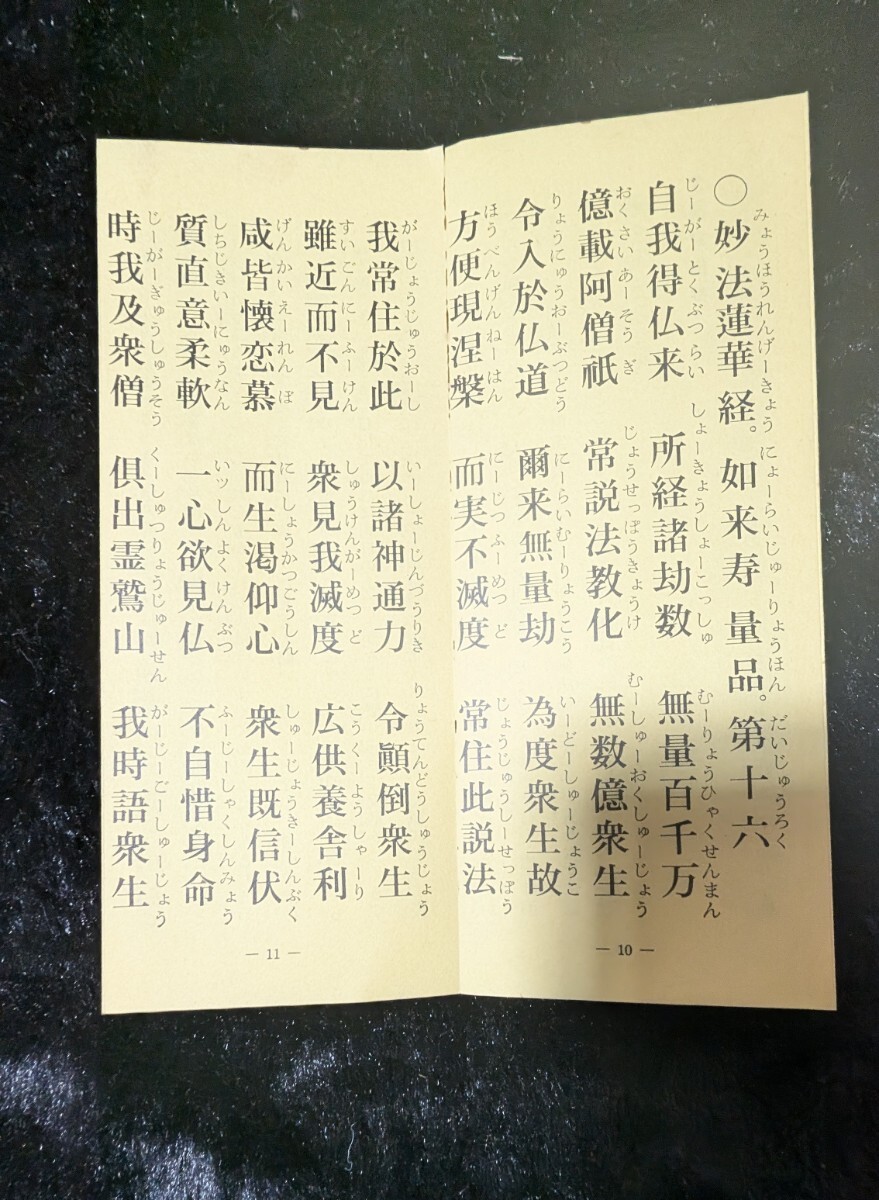 ○妙法蓮華経。如来寿量品。第十六
みょうほうれんげーきょう にょーらいじゅーりょうほん だいじゅうろく
自我得仏来 所経諸劫数 無量百千万
じーがーとくぶつらい しょーきょうしょーこっしゅ むーりょうひゃくせんまん
億載阿僧祇 常説法教化 無数億衆生
おくさいあーそうぎ じょうせっぽうきょうけ むーしゅーおくしゅーじょう
令入於仏道 爾来無量劫 為度衆生故
りょうにゅうおーぶつどう にーらいむーりょうこう いーどーしゅーじょうこ
方便現涅槃 而実不滅度 常住此説法
ほうべんげんねーはん にーじつふーめつど じょうじゅうしーせっぽう
— 10 —
我常住於此 以諸神通力 令顚倒衆生
がーじょうじゅうおーし いーしょーじんづうりき りょうてんどうしゅうじょう
雖近而不見 衆見我滅度 広供養舎利
すいごんにーふーけん しゅうけんがーめつど こうくーようしゃーり
咸皆懐恋慕 而生渇仰心 衆生既信伏
げんかいえーれんぼ にーしょうかつごうしん しゅーじょうきーしんぶく
質直意柔軟 一心欲見仏 不自惜身命
しちじきいーにゅうなん いッしんよくけんぶつ ふーじーしゃくしんみょう
時我及衆僧 倶出霊鷲山 我時語衆生
じーがーぎゅうしゅうそう くーしゅつりょうじゅーせん がーじーごーしゅーじょう
— 11 —